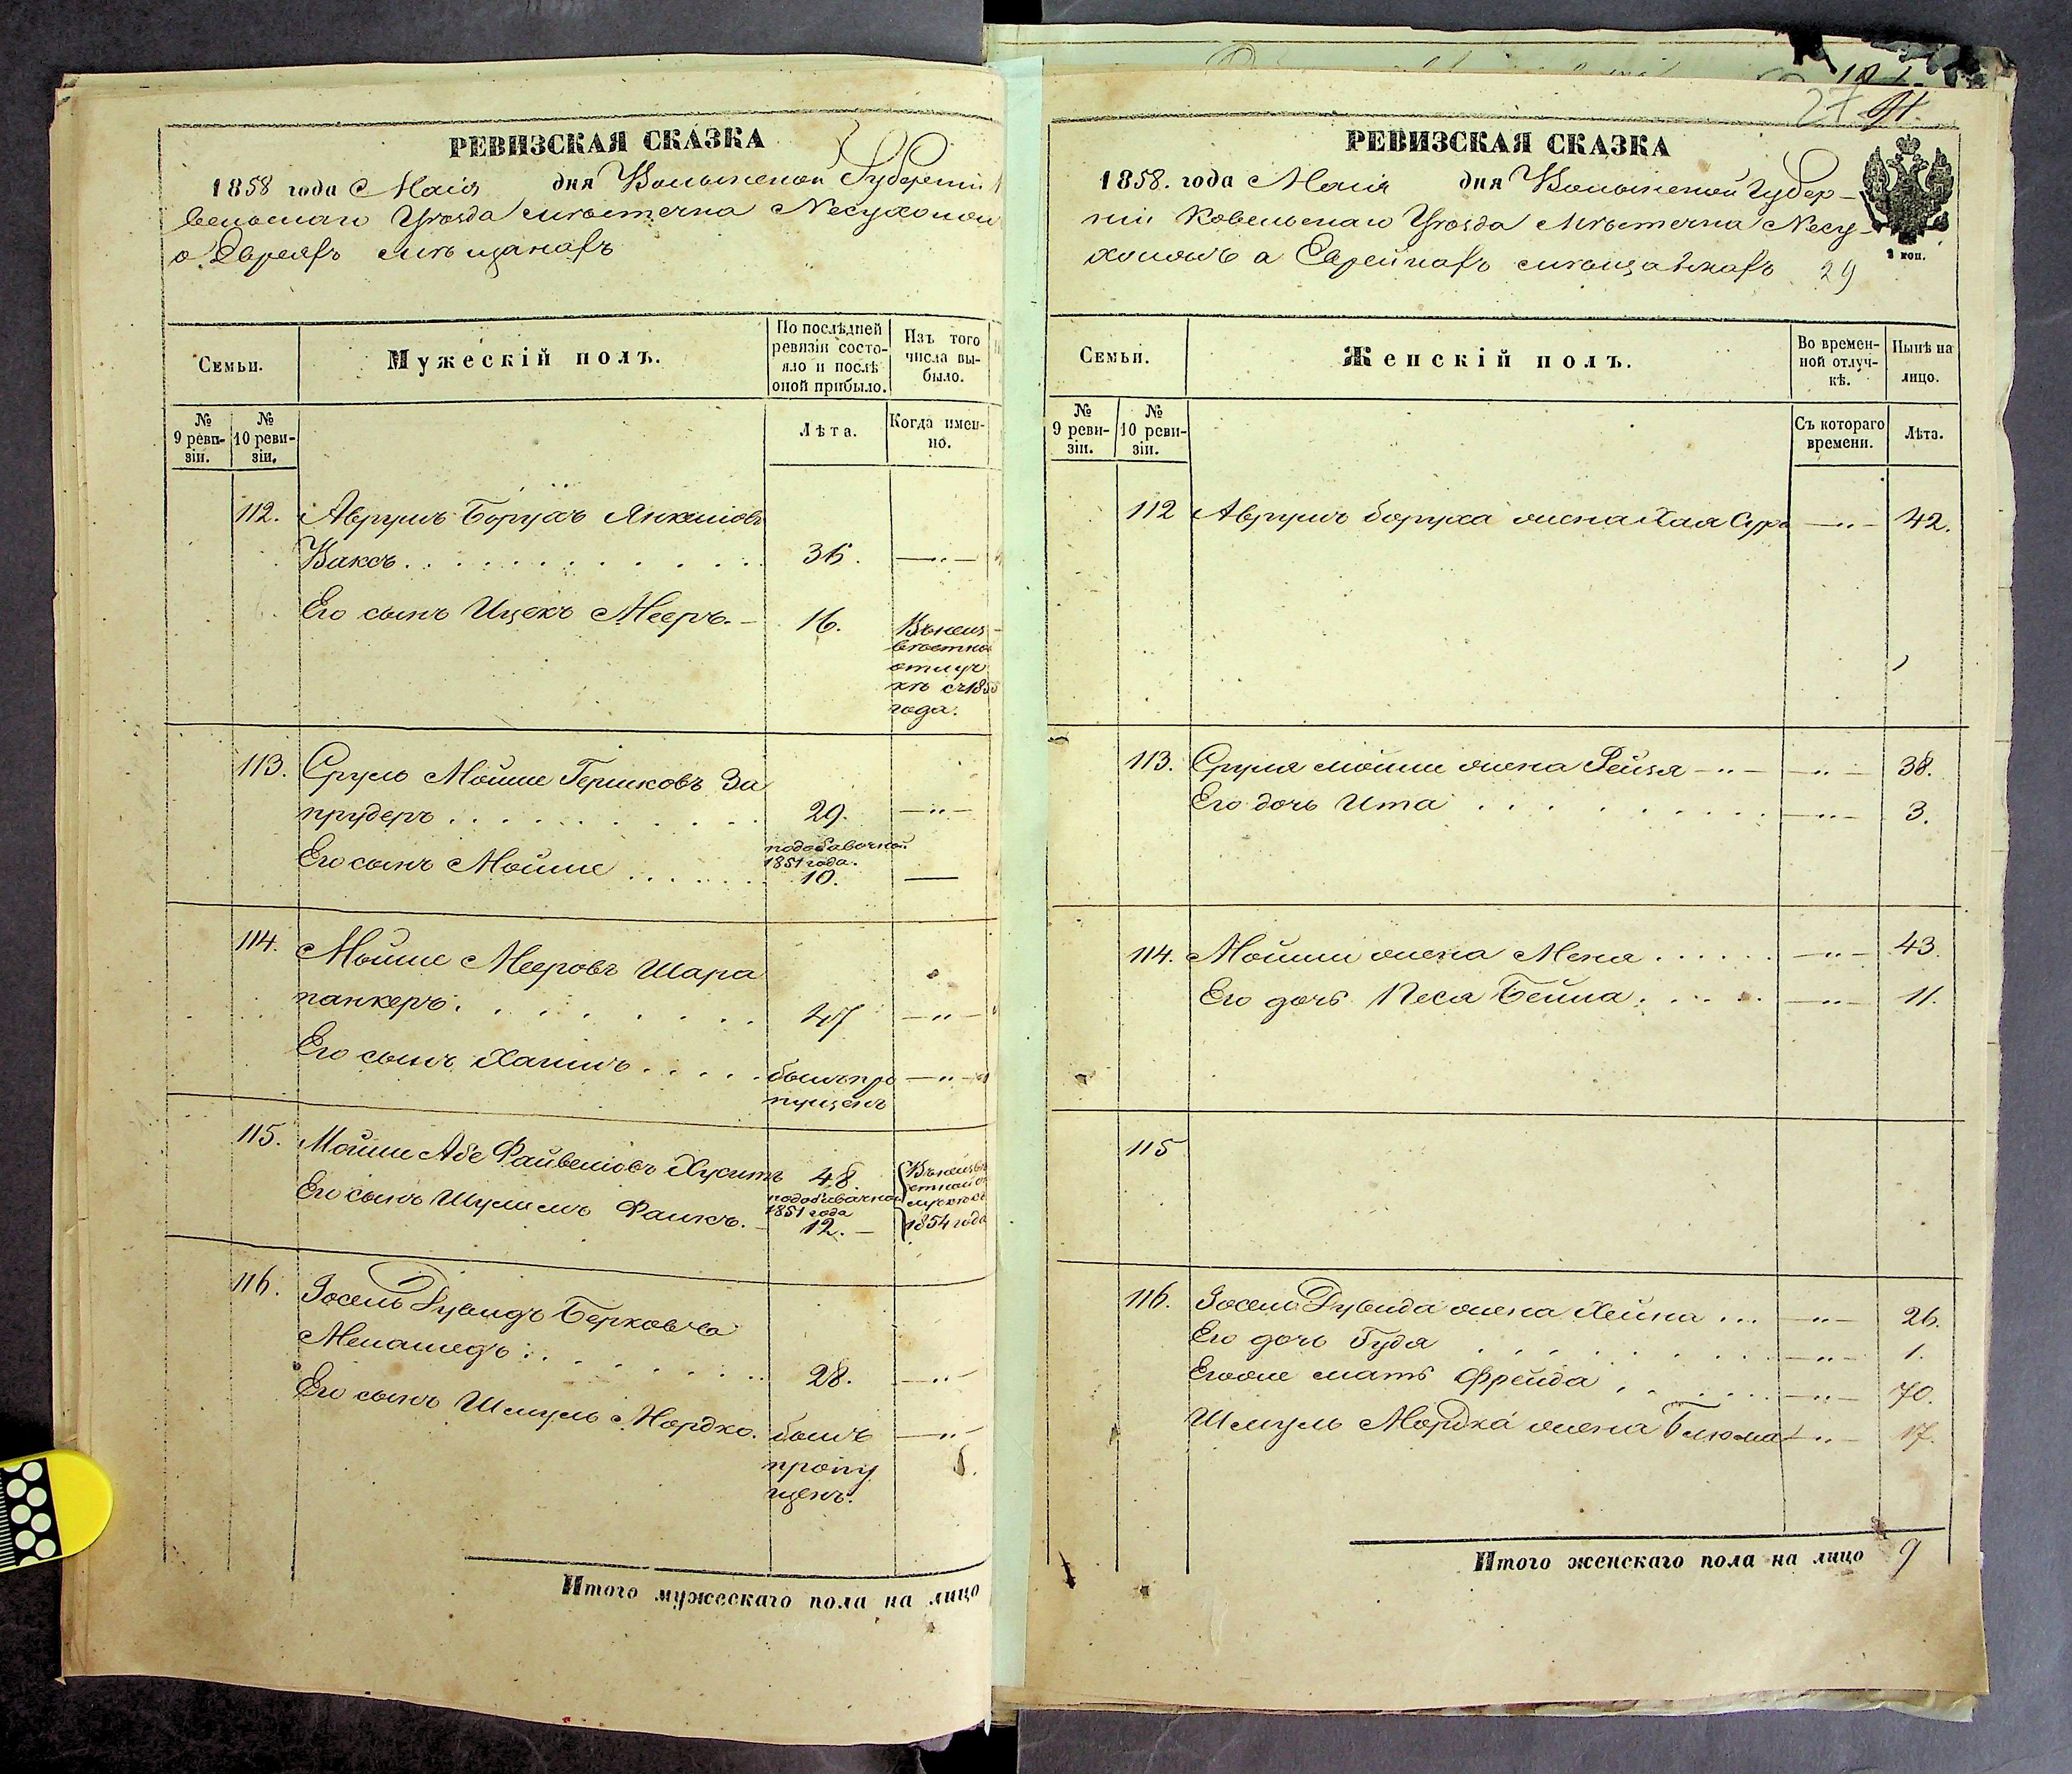 РЕВИЗСКАЯ СКАЗКА
1858 года Маія дня Волынской Губерніи
вельскаго Уѣзда мѣстечка Несухоиж
о Евреяхъ мѣщанахъ
Семьи.
Мужескій полъ.
По послѣдней ревизіи состояло и послѣ оной прибыло.
Изъ того числа выбыло.
№ 9 ревизіи.
№ 10 ревизіи.
Лѣта.
Когда именно.
112. Аврумъ Борухъ Янкелiовъ
Ваксъ . . . 36. —"—
Его сынъ Ицекъ Мееръ. — 16. Въ неиз
вѣстной
отлуч
кѣ съ 185
года.
113. Сруль Мойше Гершковъ За
прудеръ . . . 29. —"—
по добавочной
1851 года.
Его сынъ Мойше . . . 10. —
114. Мойше Мееровъ Шара
панкеръ . . . 47 —"—
Его сынъ Хаимъ . . . былъ про —"—
пущенъ
115. Мойше Абе Файвелiовъ 48. Въ неизвѣ
стной от
лучкѣ съ
1854 года
по добавочной
1851 года
Его сынъ Шулимъ Фаикъ. — 12. —
116. Іосель Дувидъ Берковъ
Менашедъ . . . 28. —"—
Его сынъ Шмуль Мордко. былъ —"—
пропу
щенъ.
Итого мужескаго пола на лицо
27 91.
РЕВИЗСКАЯ СКАЗКА
1858. года Маія дня Волынской Губер-
ніи Ковельскаго Уѣзда Мѣстечка Несу-
о Еврейкахъ мѣщанкахъ 29
2 коп.
Семьи.
Женскій полъ.
Во временной отлучкѣ.
Нынѣ на лицо.
№ 9 ревизіи.
№ 10 ревизіи.
Съ котораго времени.
Лѣта.
112 Аврумъ Боруха жена Хая Сура —"— 42.
113. Сруля Мойши жена Рейзя —"— —"— 38.
Его дочь Ита . . . —"— 3.
114. Мойши жена Меня . . . —"— 43.
Его дочь Песя Бейла . . . —"— 11.
115
116. Іосель Дувида жена Хейна ... —"— 26.
Его дочь Гудя . . . —"— 1.
Егоже мать Фрейда . . . —"— 70.
Шмуль Мордка жена Блюма —"— 17.
Итого женскаго пола на лицо 9